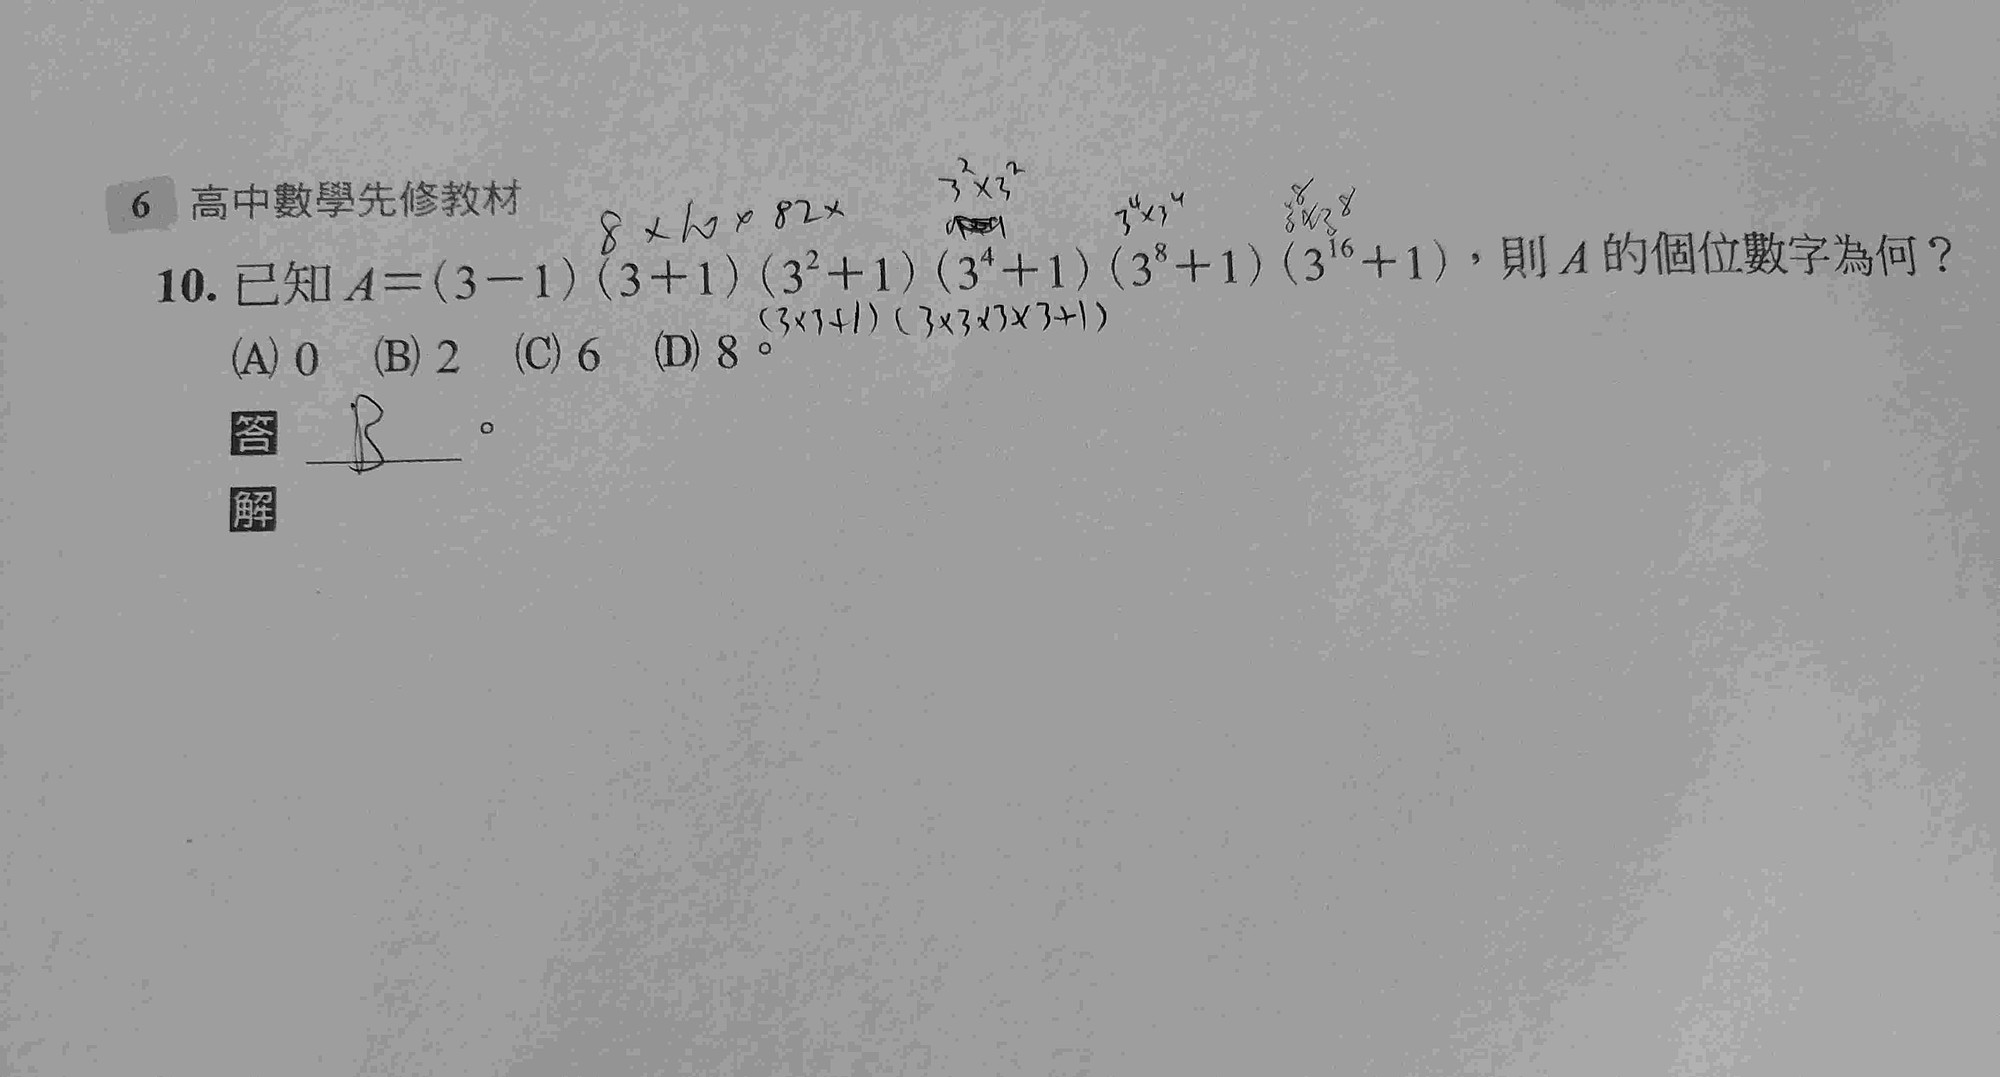 6 高中數學先修教材
3²×3²
8×10×82×
3⁴×3⁴
3⁸×3⁸
10. 已知 A＝(3－1)(3＋1)(3²＋1)(3⁴＋1)(3⁸＋1)(3¹⁶＋1)，則 A 的個位數字為何？
(3×3+1)(3×3×3×3+1)
(A) 0 (B) 2 (C) 6 (D) 8。
答 B。
解